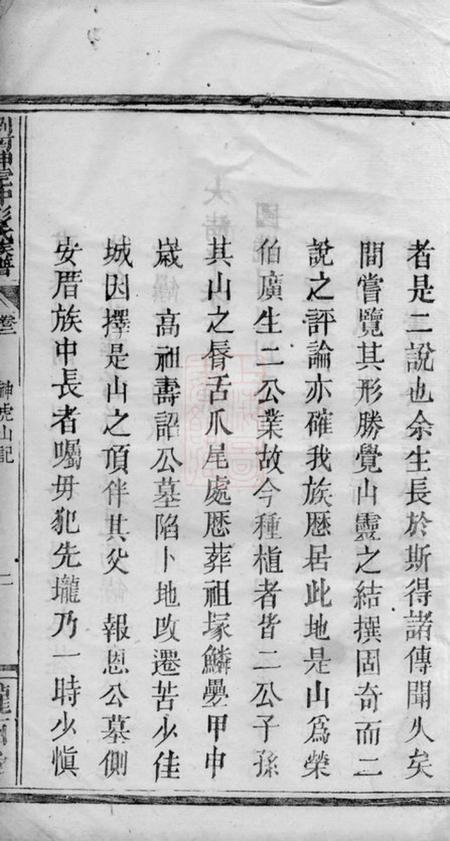 者是二說也余生長於斯得諸傳聞久矣
間嘗覽其形勝覺山靈之結撰固奇而二
說之評論亦確我族歷居此地是山爲榮
伯廣生二公業故今種植者皆二公子孫
其山之唇舌爪尾處歷葬祖塚鱗疊甲申
歲 高祖壽詔公墓陷卜地改遷苦少佳
城因擇是山之頂伴其父 報恩公墓側
安厝族中長者囑毋犯先壠乃一時少愼
氏族譜
卷
神虎山記
二